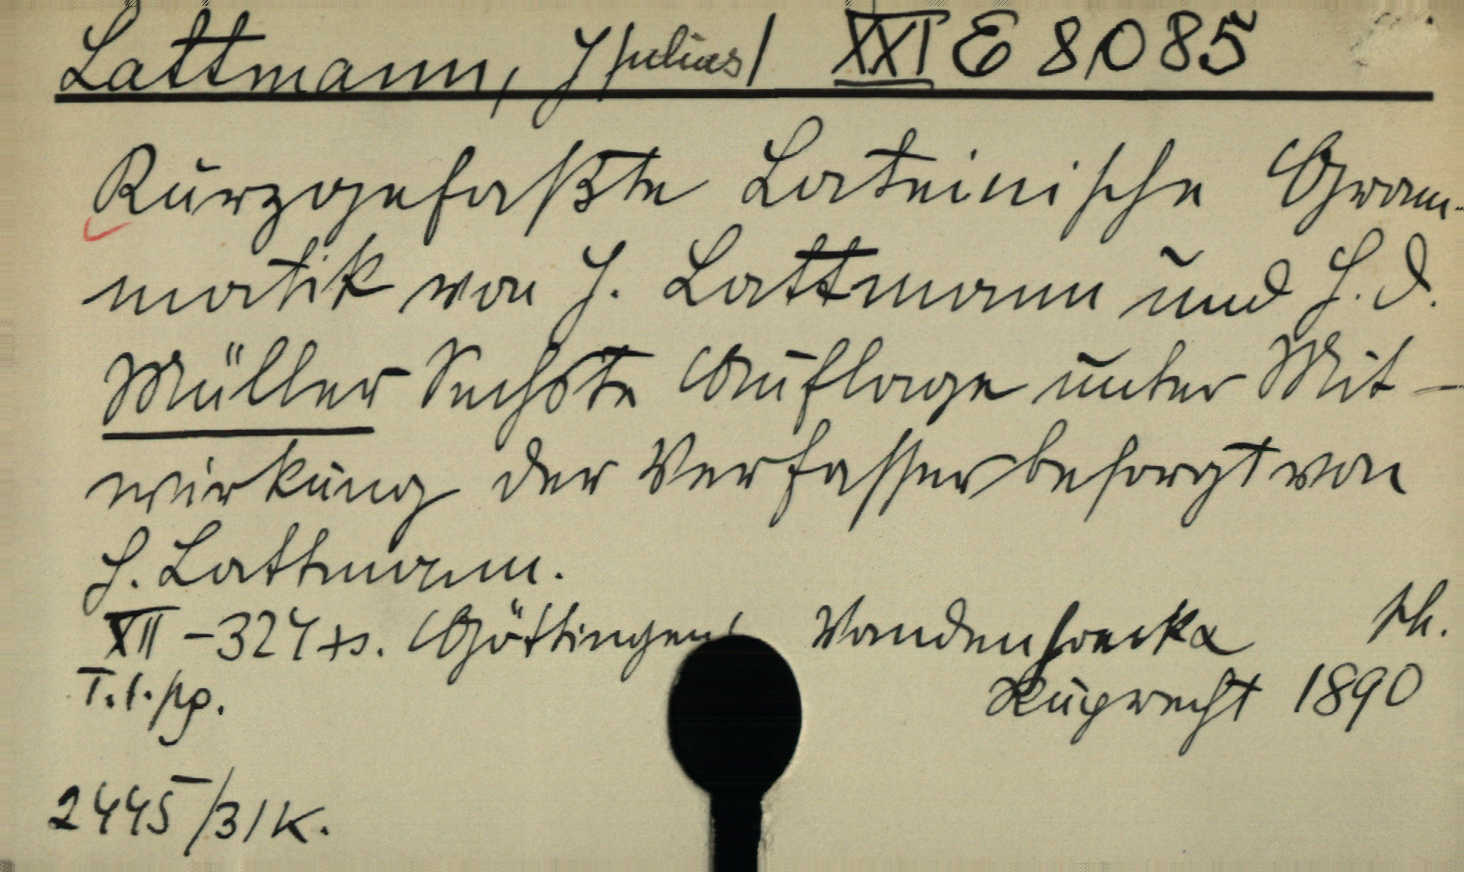 Lattmann, J/ulius/ XXI E 8085
Kurzgefaßte Lateinische Gram-
matik von J. Lattmann und H. D.
Müller Sechste Auflage unter Mit-
wirkung der Verfasser besorgt von
H. Lattmann.
XII-327+s. Göttingen Vandenhoeck &
Ruprecht 1890
2445/31K.